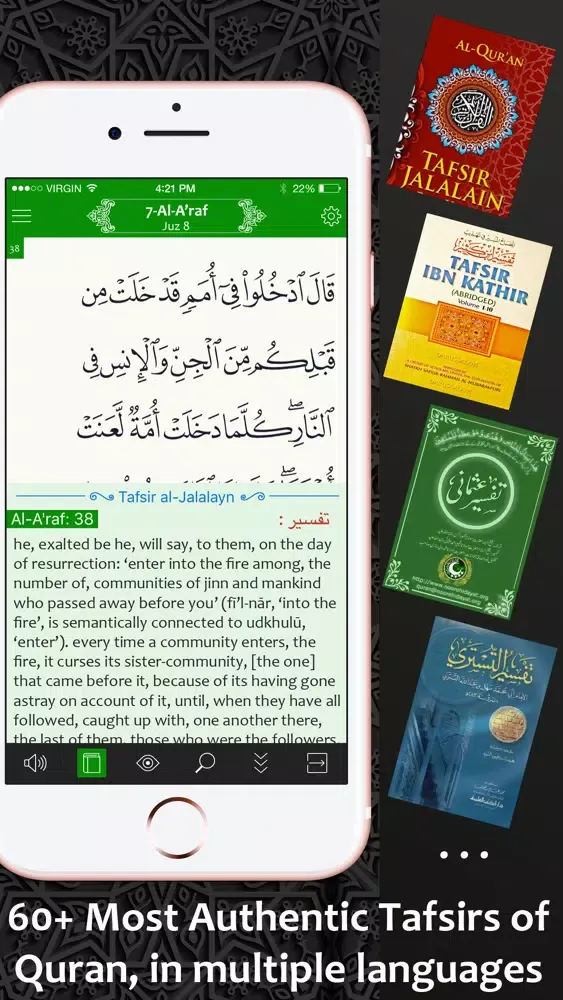 VIRGIN
4:21 PM
22%
7-Al-A'raf
Juz 8
38
قَالَ ٱدۡخُلُواْ فِيٓ أُمَمٖ قَدۡ خَلَتۡ مِن
قَبۡلِكُم مِّنَ ٱلۡجِنِّ وَٱلۡإِنسِ فِي
ٱلنَّارِۖ كُلَّمَا دَخَلَتۡ أُمَّةٞ لَّعَنَتۡ
Tafsir al-Jalalayn
Al-A'raf: 38
تفسير :
he, exalted be he, will say, to them, on the day
of resurrection: ‘enter into the fire among, the
number of, communities of jinn and mankind
who passed away before you’ (fī’l-nār, ‘into the
fire’, is semantically connected to udkhulū,
‘enter’). every time a community enters, the
fire, it curses its sister-community, [the one]
that came before it, because of its having gone
astray on account of it, until, when they have all
followed, caught up with, one another there,
the last of them, those who were the followers
AL-QUR'AN
TAFSIR
JALALAIN
TAFSIR
IBN KATHIR
(ABRIDGED)
Volume 1-10
تفسير عثماني
تفسير التستري
...
60+ Most Authentic Tafsirs of
Quran, in multiple languages